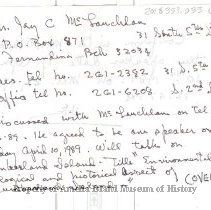 2018.333.033
Jay C McLauchlan
P.O. Box 871 31 South 5th
Fernandina Bch 32034
tel no. 261-2382 31 S. 5th
office tel no. 261-6208
discussed with McLauchlan on tel
-89. He agreed to be our speaker on
day April 10, 1989. Will talk on
Cumberland Island - Title "Environmental
logical and historical aspect of
Property of Amelia Island Museum of History